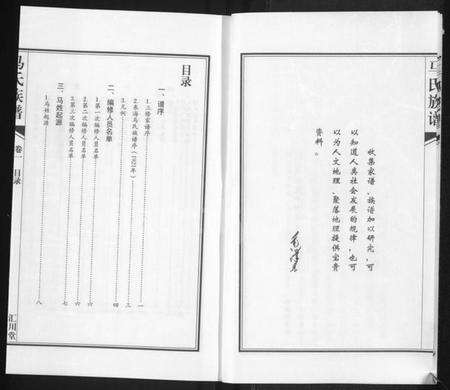 氏族谱
收集家谱、族谱加以研究,可
以知道人类社会发展的规律,也可
以为人文地理、聚落地理提供宝贵
资料。
毛泽东
目录
一、谱序
1.三修宗谱序……一
2.东海马氏族谱序(1921年)……三
3.凡例……四
二、编修人员名单
1.第一次编修人员名单……六
2.第二次编修人员名单……六
3.第三次编修人员名单……七
三、马姓起源
1.马姓起源……八
马氏族谱
卷一
目录
汇川堂